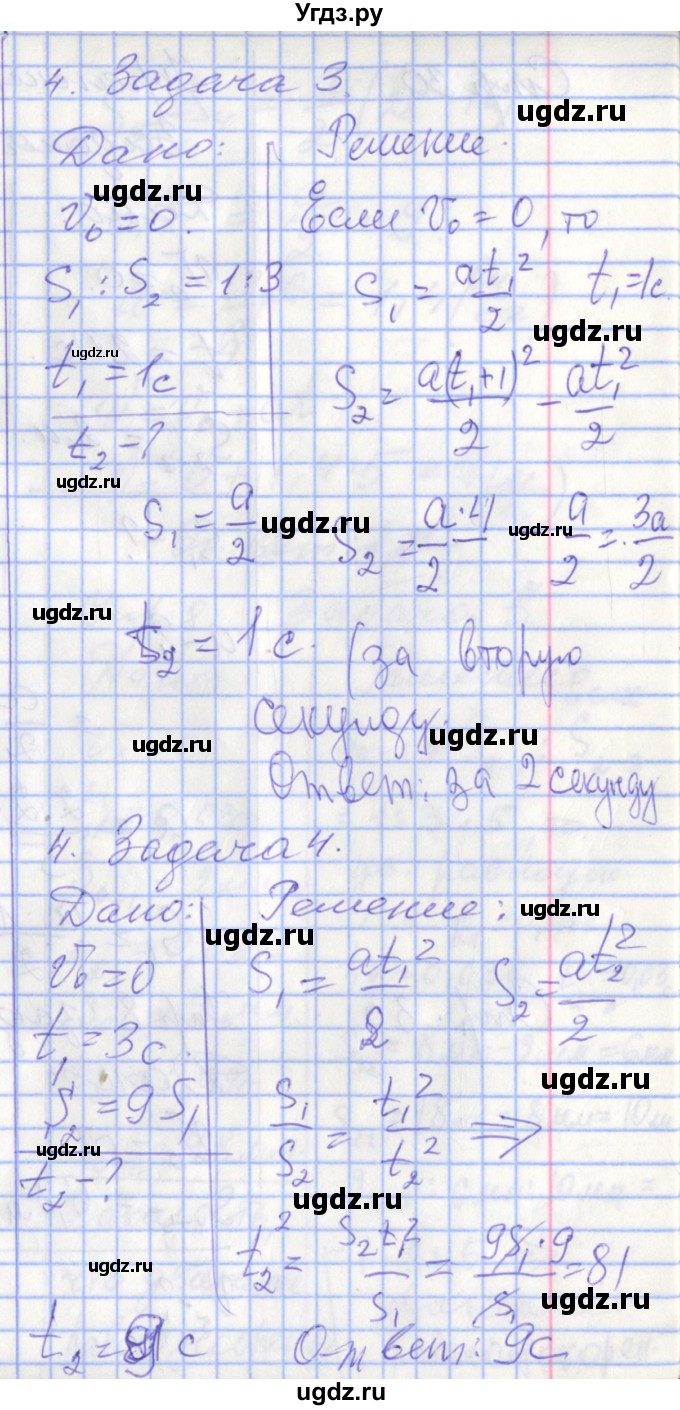 Угдз.ру
4. Задача 3.
ugdz.ru
Дано: Решение.
ugdz.ru
V₀ = 0. Если V₀ = 0, то
S₁ : S₂ = 1:3 S₁ = at₁²/2 t₁ = 1с.
ugdz.ru ugdz.ru
t₁ = 1с S₂ = a(t₁+1)²/2 - at₁²/2
t₂ - ?
ugdz.ru
S₁ = a/2 S₂ = a·4/2 - a/2 = 3a/2
ugdz.ru ugdz.ru
ugdz.ru
t₂ = 1 с. (за вторую
секунду.
ugdz.ru ugdz.ru
Ответ: за 2 секунду
4. Задача 4.
Дано: Решение:
ugdz.ru ugdz.ru
V₀ = 0 S₁ = at₁²/2 S₂ = at₂²/2
t₁ = 3с.
ugdz.ru
S₂ = 9S₁ S₁/S₂ = t₁²/t₂² ⇒
ugdz.ru
t₂ - ?
ugdz.ru
t₂² = S₂t₁²/S₁ = 9S₁·9/S₁ = 81
ugdz.ru ugdz.ru
t₂ = 9 с Ответ: 9с.
ugdz.ru